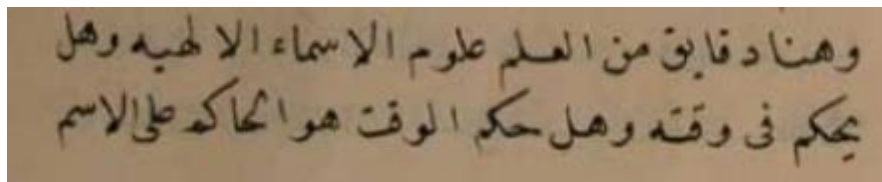 وهنا دقايق من العلم علوم الاسماء الالهيه وهل
يحكم فى وقته وهل حكم الوقت هو الحاكم على الاسم